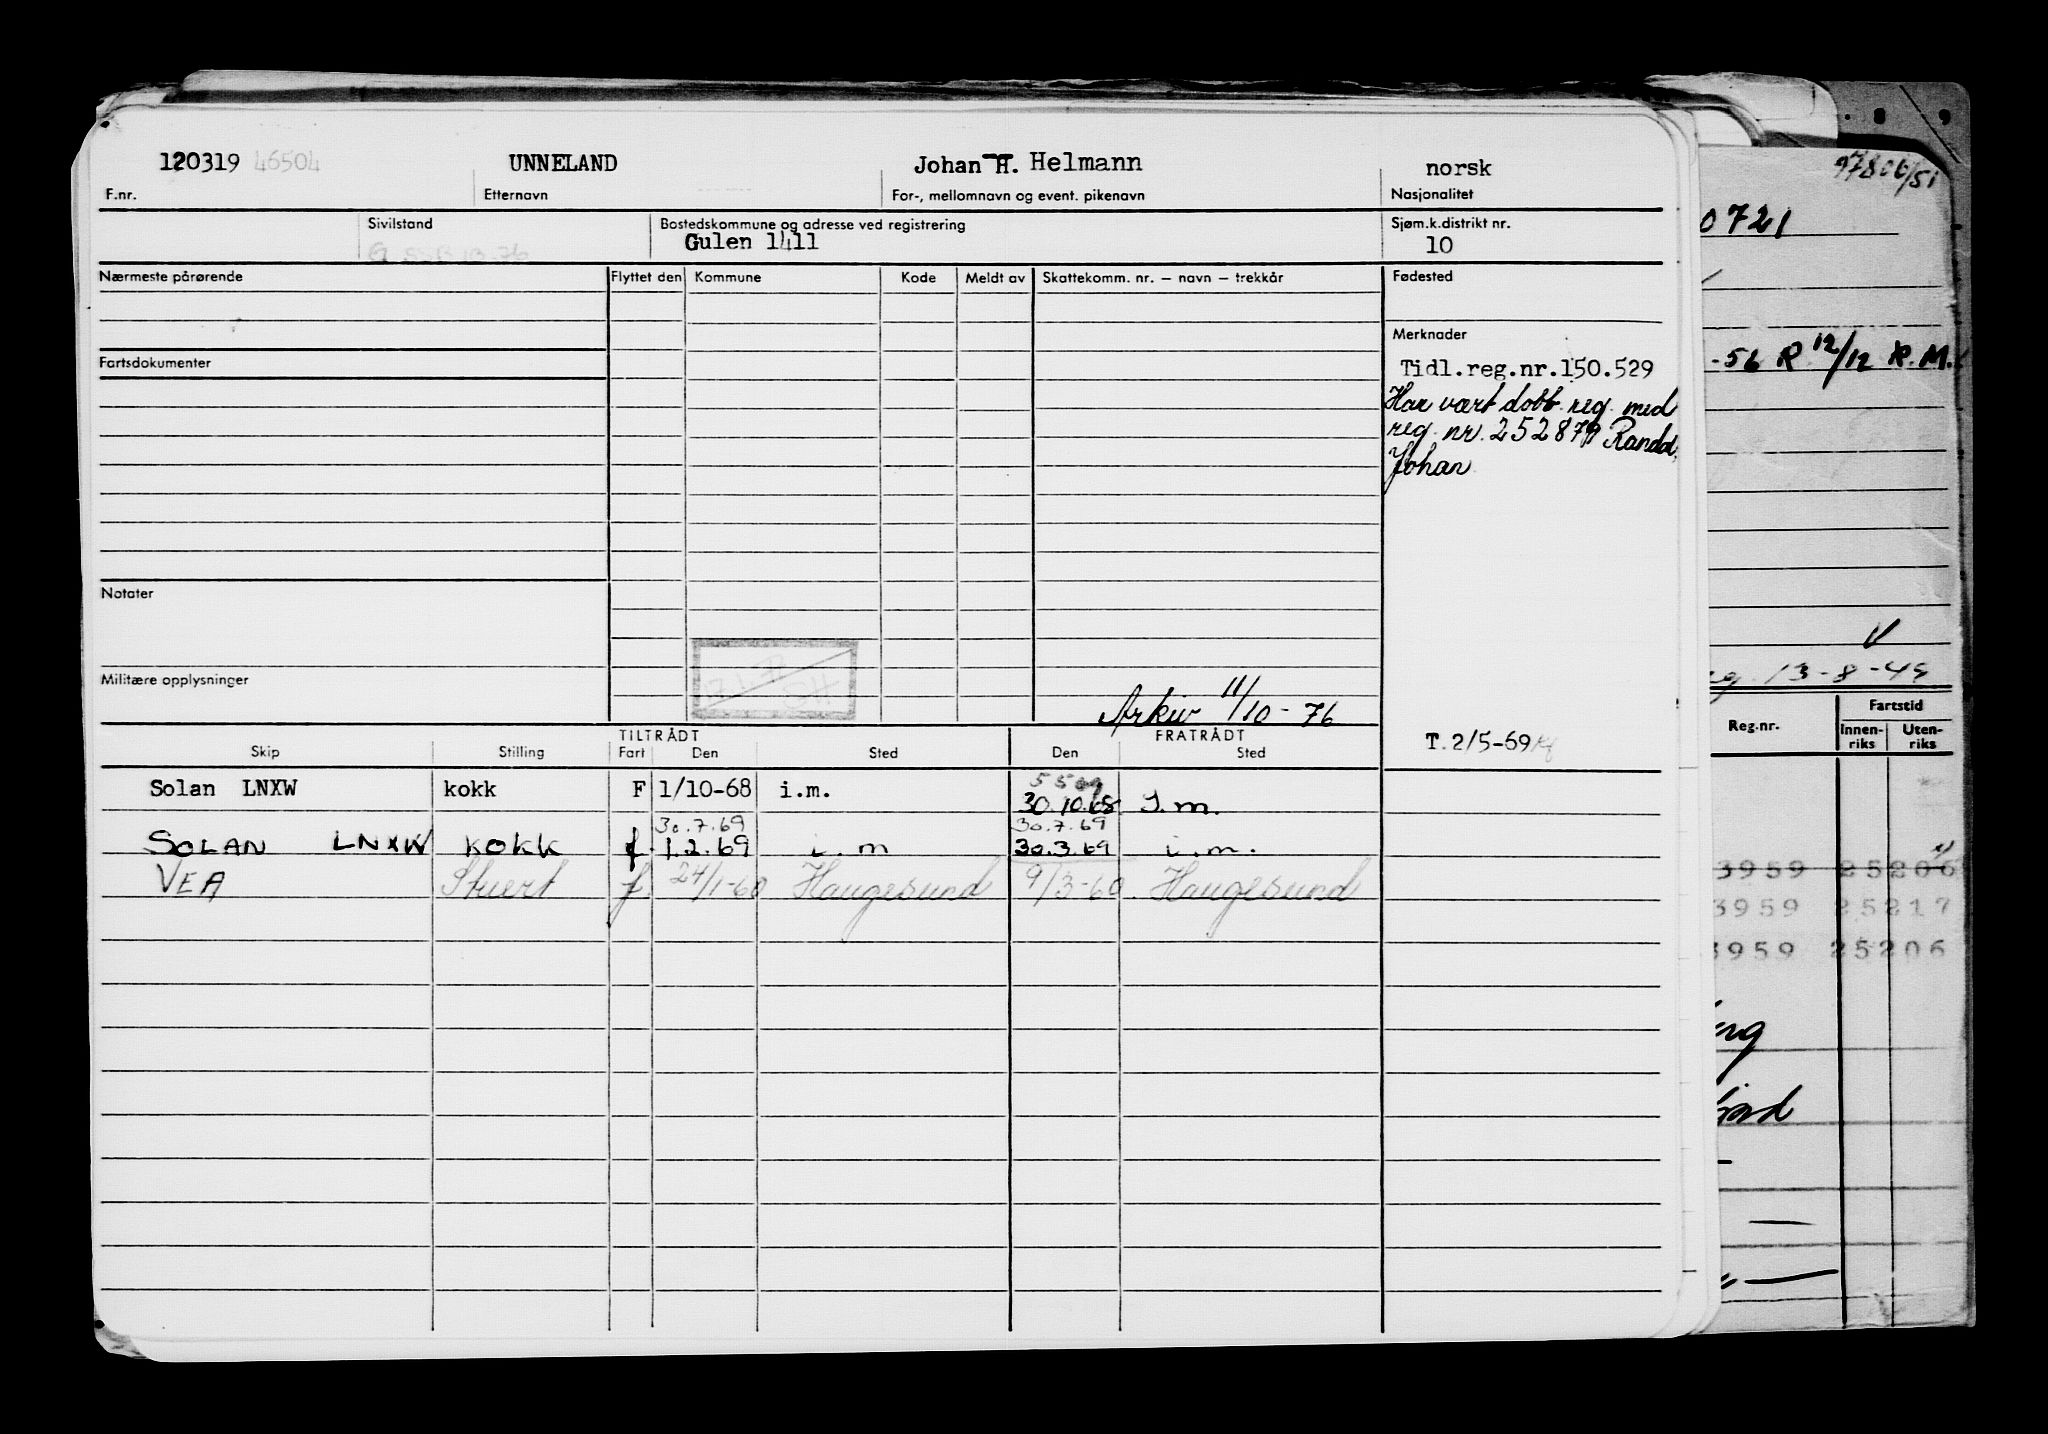 120319 46504 UNNELAND Johan H. Helmann norsk
F.nr. Etternavn For-, mellomnavn og event. pikenavn Nasjonalitet
Sivilstand Bostedskommune og adresse ved registrering Sjøm.k.distrikt nr.
Gulen 1411 10
Nærmeste pårørende Flyttet den Kommune Kode Meldt av Skattekomm. nr. — navn — trekkår Fødested
Merknader
Fartsdokumenter
Tidl.reg.nr.150.529
Har vært dobb. reg. med
reg. nr. 252879 Randal,
Johan
Notater
Militære opplysninger
17.1.72
SH
Arkiv 11/10-76
TILTRÅDT FRATRÅDT
Skip Stilling Fart Den Sted Den Sted
T.2/5-69
5509
Solan LNXW kokk F 1/10-68 i.m. 30.10.68 I.m.
30.7.69 30.7.69
SOLAN LNXW KOKK f. 1.2.69 i.m 30.3.69 i.m.
VEA Stuert f. 24/1-60 Haugesund 9/3-60 Haugesund
8 9
97806/51
0721
-56 R 12/12 R.M.
13-8-49
Reg.nr. Fartstid
Innen-riks Uten-riks
3959 25206
3959 25217
3959 25206